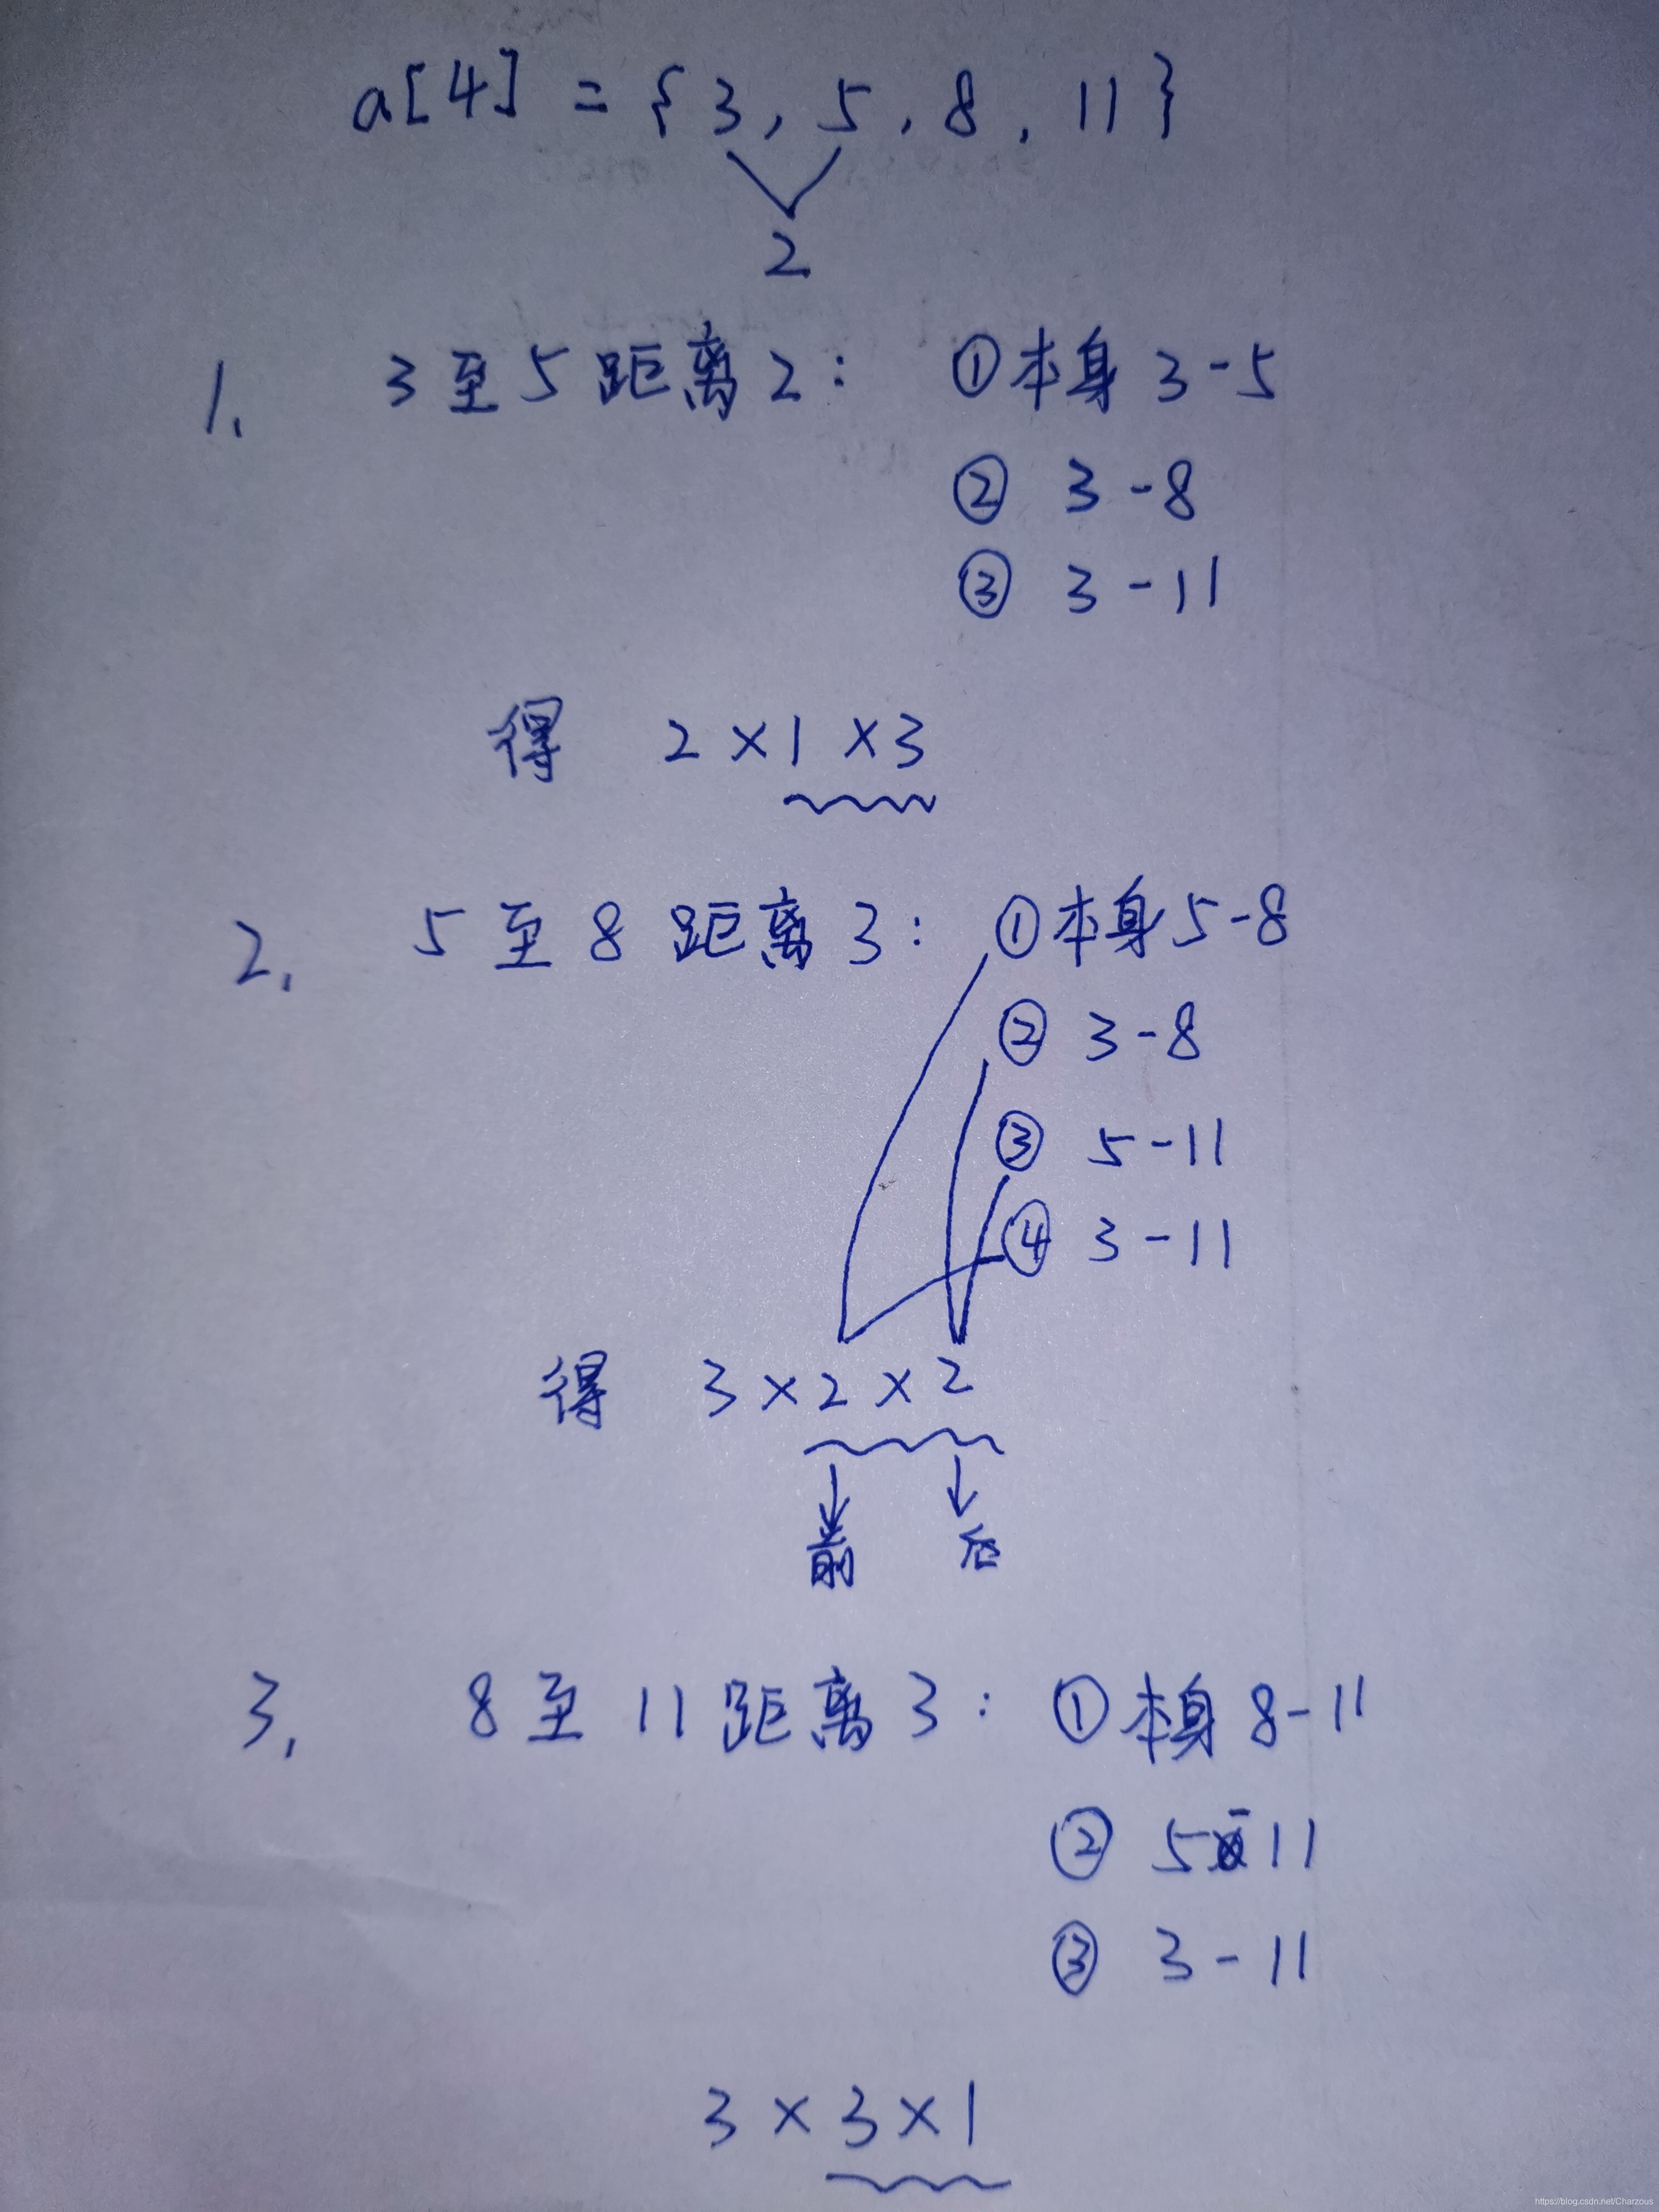 a[4] = {3, 5, 8, 11}
2
1. 3至5距离2: ①本身 3-5
② 3-8
③ 3-11
得 2×1×3
2. 5至8距离3: ①本身5-8
② 3-8
③ 5-11
④ 3-11
得 3×2×2
前 后
3. 8至11距离3: ①本身 8-11
② 5-11
③ 3-11
3×3×1
https://blog.csdn.net/Charzous